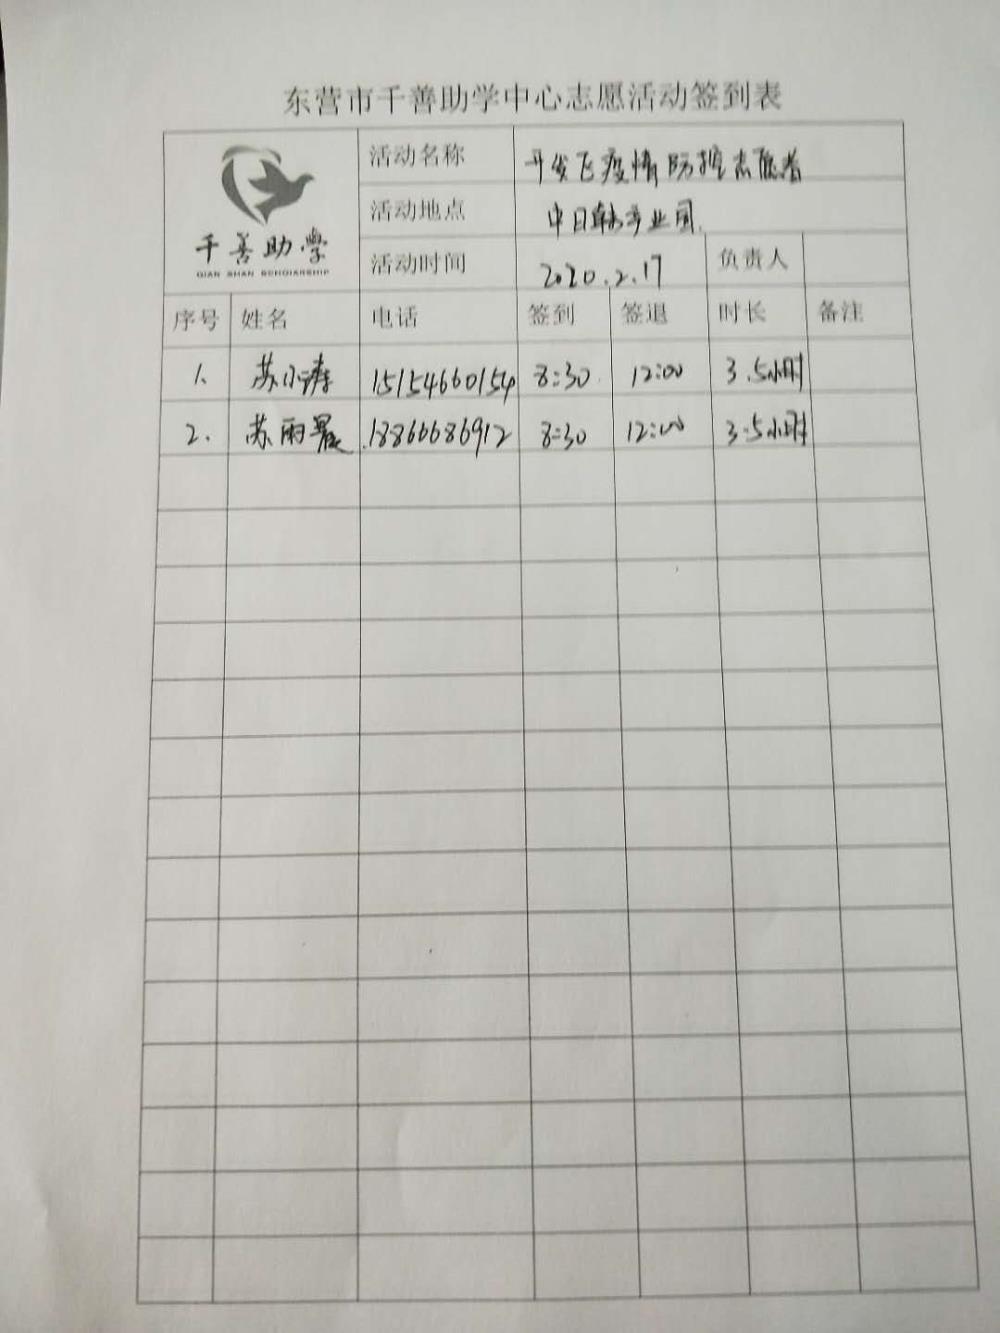 东营市千善助学中心志愿活动签到表
千善助学
QIAN SHAN SCHOLARSHIP
活动名称 开发区疫情防控志愿者
活动地点 中日韩产业园
活动时间 2020.2.17 负责人
序号 姓名 电话 签到 签退 时长 备注
1. 苏小涛 15154660154 8:30 12:00 3.5小时
2. 苏雨晨 18866686912 8:30 12:00 3.5小时